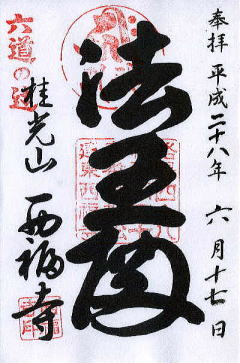 奉拝 平成二十八年 六月十七日
法王閣
六道の辻
桂光山 西福寺